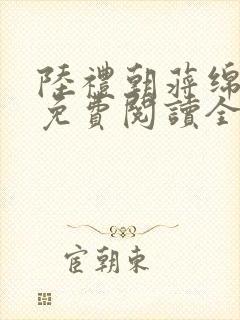 陸禮朝蔣綿
免費閱讀全
宦朝東